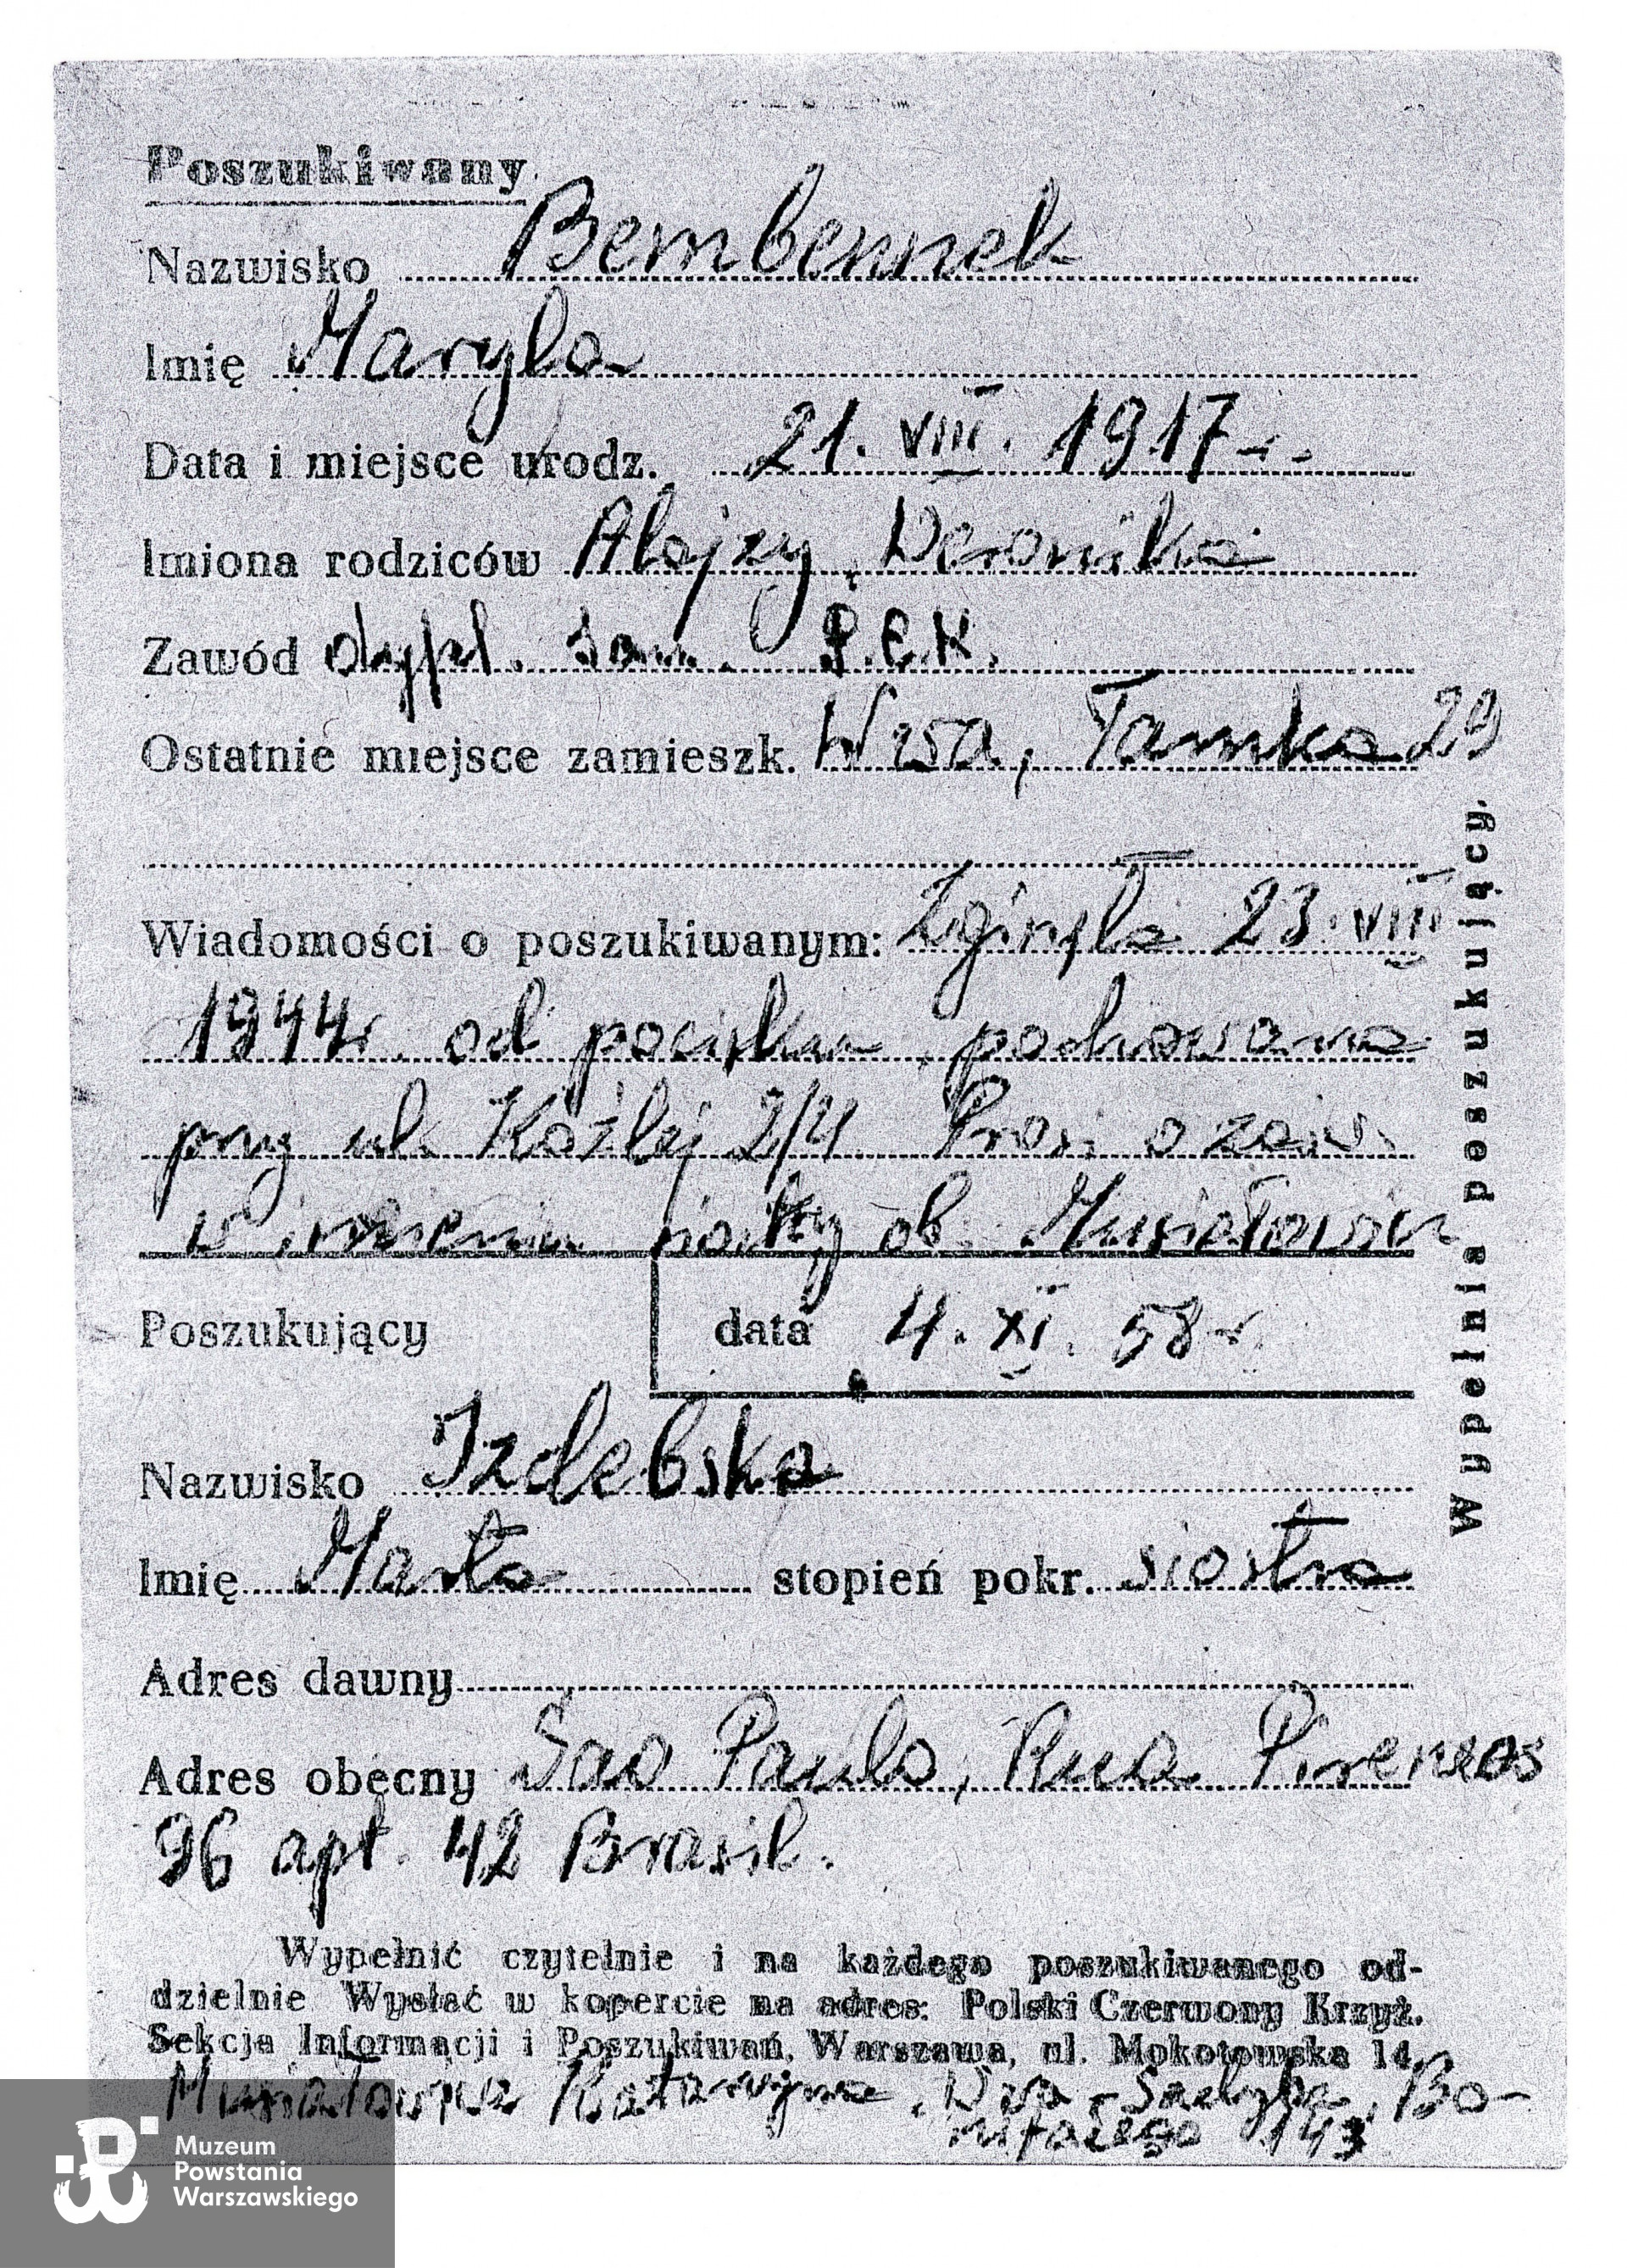 Poszukiwany
Nazwisko Bembennek
Imię Maryla
Data i miejsce urodz. 21. VIII. 1917 r.
Imiona rodziców Alojzy, Weronika
Zawód dypl. san. P.C.K.
Ostatnie miejsce zamieszk. Wwa, Tamka 29
Wiadomości o poszukiwanym: Zginęła 23. VIII
1944r. od pocisku, pochowana
przy ul. Koźlej 2/4. Prosi o zaw.
w imieniu siostry ob. Musiałowicz
Poszukujący data 4. XI. 58 r.
Nazwisko Izdebska
Imię Marta stopień pokr. siostra
Adres dawny
Adres obecny Sao Paulo, Rua Pireneos
96 apt. 42 Brasil.
Wypełnia poszukujący.
Wypełnić czytelnie i na każdego poszukiwanego od-
dzielnie Wysłać w kopercie na adres: Polski Czerwony Krzyż.
Sekcja Informacji i Poszukiwań, Warszawa, ul. Mokotowska 14.
Musiałowicz Katarzyna, Wwa - Sadyba, Bo-
nifacego 143
Muzeum
Powstania
Warszawskiego